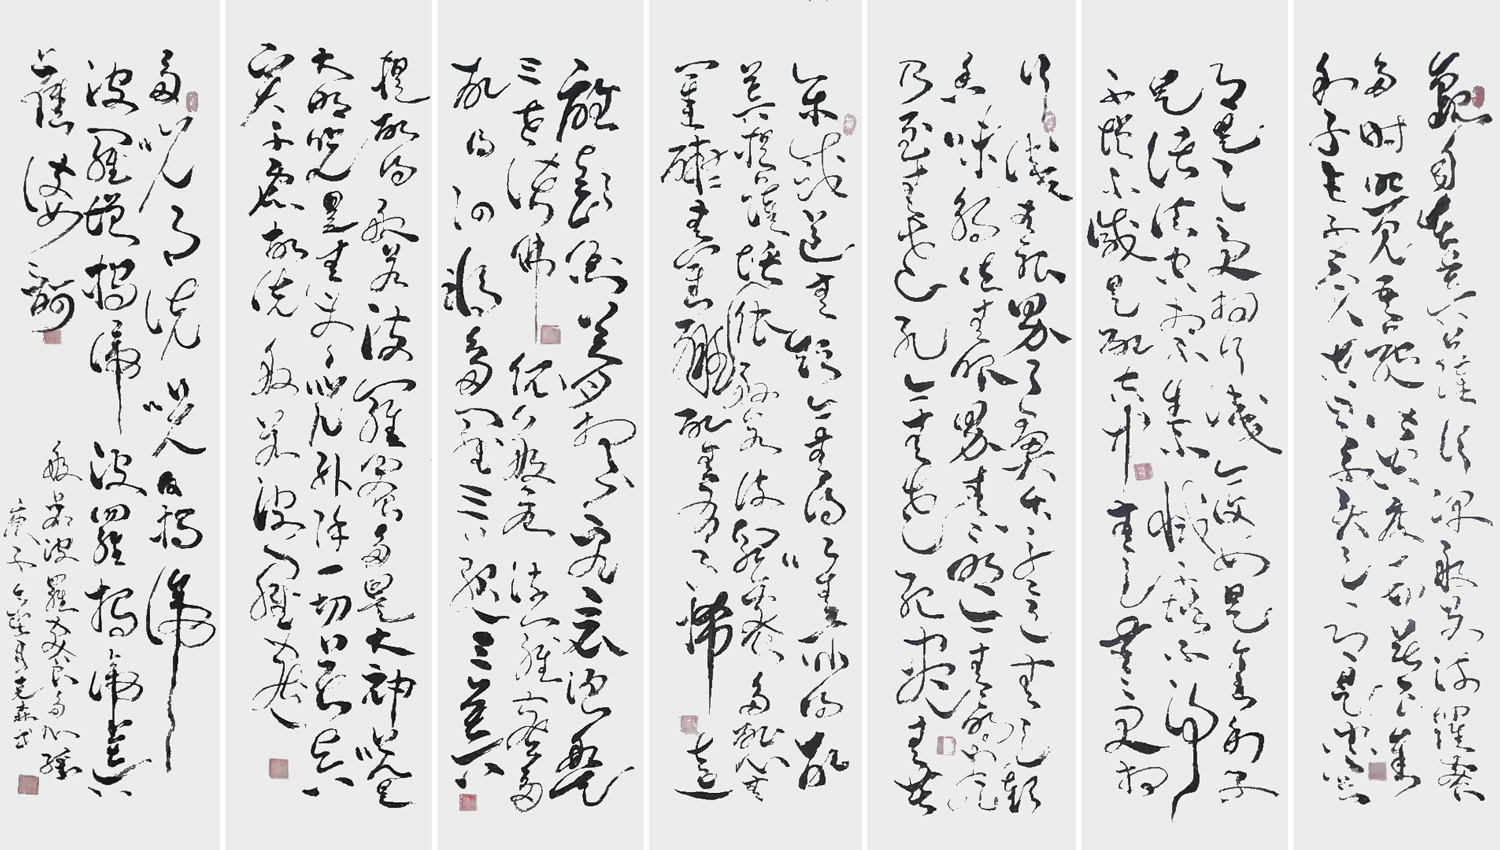 觀自在菩薩行深般若波羅蜜
多時照見五蘊皆空度一切苦厄舍
利子色不異空空不異色色即是空空
即是色受想行識亦復如是舍利子
是諸法空相不生不滅不垢不淨
不增不減是故空中無色無受想
行識無眼耳鼻舌身意無色聲
香味觸法無眼界無無明亦無無明盡
乃至無老死亦無老死盡無苦
集滅道無智亦無得以無所得故
菩提薩埵依般若波羅蜜多故心無
罣礙無罣礙故無有恐怖遠
離顛倒夢想究竟涅槃
三世諸佛依般若波羅蜜多
故得阿耨多羅三藐三菩
提故知般若波羅蜜多是大神咒是
大明咒是無上咒除一切苦真
實不虛故說般若波羅蜜
多咒即說咒曰揭諦
波羅揭諦波羅僧揭諦菩
薩婆訶
般若波羅蜜多心經
庚子